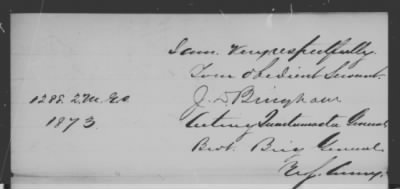 I am, Very respectfully
Your obedient Servant.
J. D. Bingham
Acting Quartermaster General
Bvt. Brig General
U.S. Army.
1873